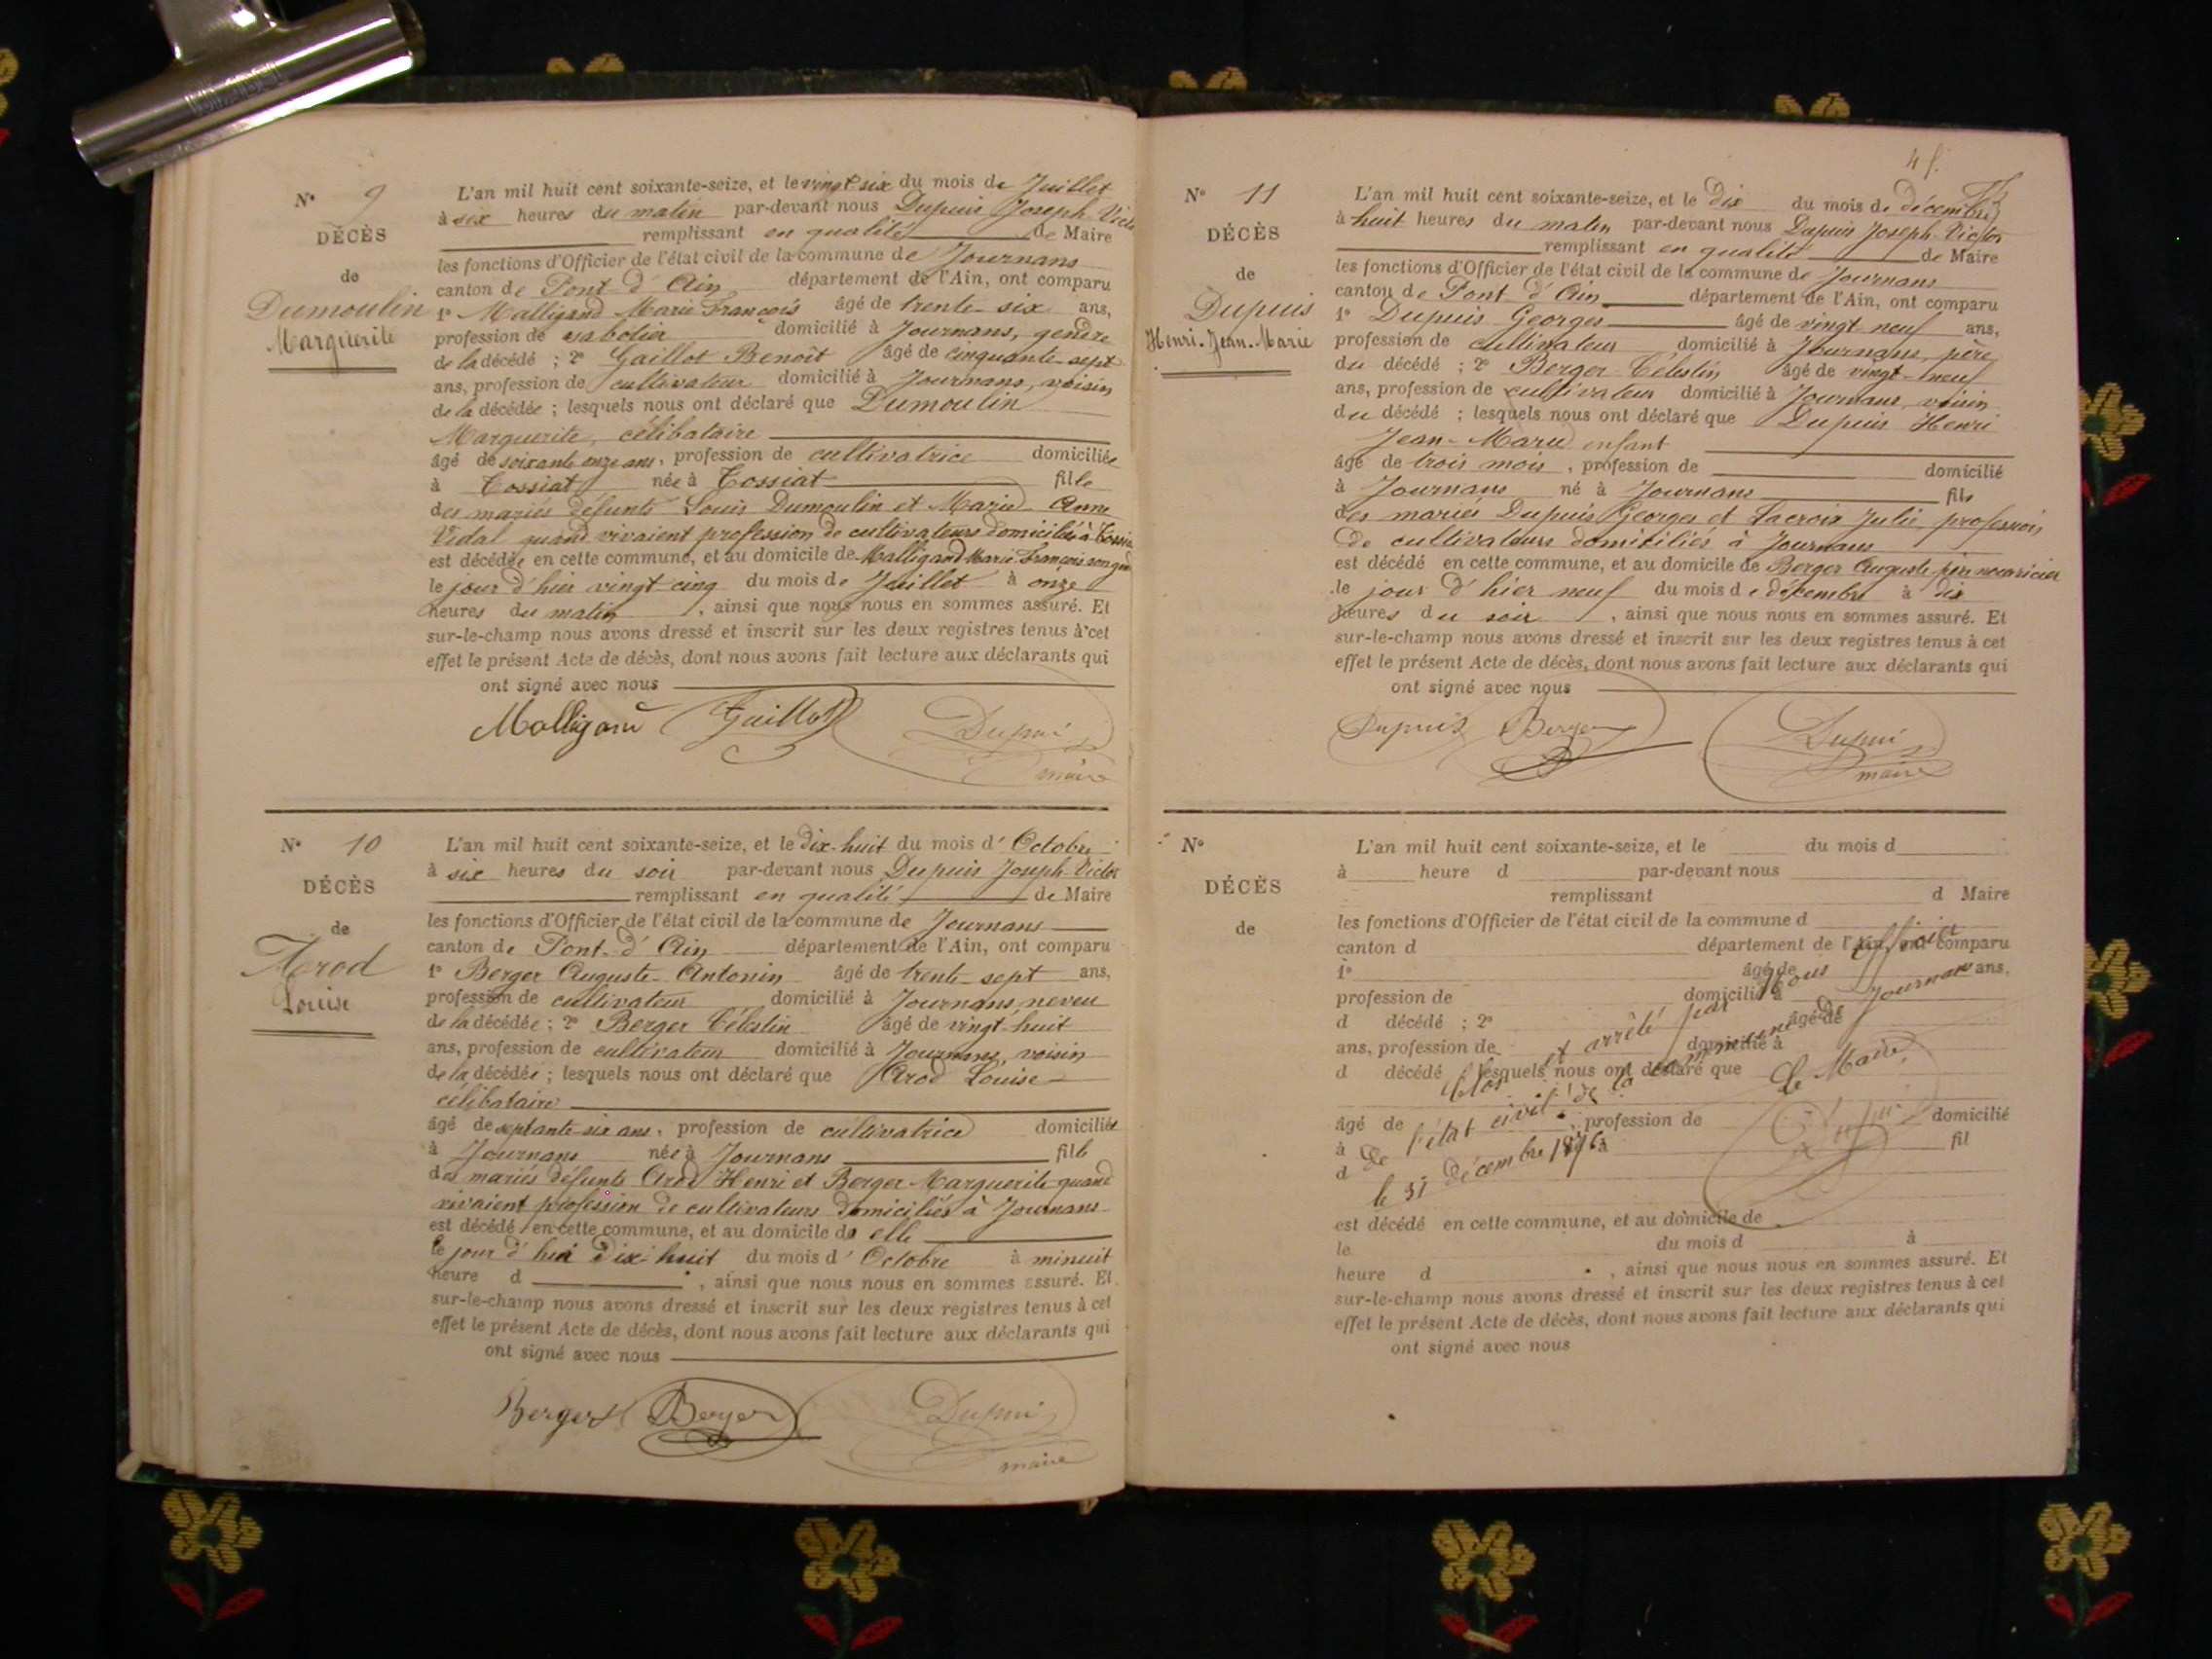 N° 9
DÉCÈS
de
Dumoulin
Marguerite
L'an mil huit cent soixante-seize, et le vingt six du mois de Juillet
à six heures du matin par-devant nous Dupuis Joseph Victor
remplissant en qualité de Maire
les fonctions d'Officier de l'état civil de la commune de Journans
canton de Pont d'Ain département de l'Ain, ont comparu
1° Malligand Marie François âgé de trente-six ans,
profession de sabotier domicilié à Journans, gendre
de la décédé ; 2° Gaillot Benoît âgé de cinquante-sept
ans, profession de cultivateur domicilié à Journans, voisin
de la décédée ; lesquels nous ont déclaré que Dumoulin
Marguerite, célibataire
âgé de soixante onze ans, profession de cultivatrice domiciliée
à Tossiat née à Tossiat fille
des mariés défunts Louis Dumoulin et Marie Anne
Vidal quand vivaient profession de cultivateurs domiciliés à Tossiat
est décédée en cette commune, et au domicile de Malligand Marie François son gendre
le jour d'hier vingt-cinq du mois de Juillet à onze
heures du matin, ainsi que nous nous en sommes assuré. Et
sur-le-champ nous avons dressé et inscrit sur les deux registres tenus à cet
effet le présent Acte de décès, dont nous avons fait lecture aux déclarants qui
ont signé avec nous
Malligand Gaillot Dupui
maire
N° 10
DÉCÈS
de
Arod
Louise
L'an mil huit cent soixante-seize, et le dix-huit du mois d'Octobre
à six heures du soir par-devant nous Dupuis Joseph-Victor
remplissant en qualité de Maire
les fonctions d'Officier de l'état civil de la commune de Journans
canton de Pont-d'Ain département de l'Ain, ont comparu
1° Berger Auguste-Antonin âgé de trente-sept ans,
profession de cultivateur domicilié à Journans, neveu
de la décédée ; 2° Berger Célestin âgé de vingt-huit
ans, profession de cultivateur domicilié à Journans, voisin
de la décédée ; lesquels nous ont déclaré que Arod Louise
célibataire
âgé de septante-six ans, profession de cultivatrice domiciliée
à Journans née à Journans fille
des mariés défunts Arod Henri et Berger Marguerite quand
vivaient profession de cultivateurs domiciliés à Journans
est décédé en cette commune, et au domicile de elle
le jour d'hui dix-huit du mois d'Octobre à minuit
heure d , ainsi que nous nous en sommes assuré. Et
sur-le-champ nous avons dressé et inscrit sur les deux registres tenus à cet
effet le présent Acte de décès, dont nous avons fait lecture aux déclarants qui
ont signé avec nous
Berger Berger Dupui
maire
N° 11
DÉCÈS
de
Dupuis
Henri-Jean-Marie
L'an mil huit cent soixante-seize, et le dix du mois de décembre
à huit heures du matin par-devant nous Dupuis Joseph-Victor
remplissant en qualité de Maire
les fonctions d'Officier de l'état civil de la commune de Journans
canton de Pont d'Ain département de l'Ain, ont comparu
1° Dupuis Georges âgé de vingt neuf ans,
profession de cultivateur domicilié à Journans, père
du décédé ; 2° Berger Célestin âgé de vingt-neuf
ans, profession de cultivateur domicilié à Journans, voisin
du décédé ; lesquels nous ont déclaré que Dupuis Henri
Jean-Marie enfant
âgé de trois mois, profession de domicilié
à Journans né à Journans fils
des mariés Dupuis Georges et Lacroix Julie, profession
de cultivateurs domiciliés à Journans
est décédé en cette commune, et au domicile de Berger Auguste père nourricier
le jour d'hier neuf du mois de décembre à dix
heures du soir, ainsi que nous nous en sommes assuré. Et
sur-le-champ nous avons dressé et inscrit sur les deux registres tenus à cet
effet le présent Acte de décès, dont nous avons fait lecture aux déclarants qui
ont signé avec nous
Dupuis Berger Dupui
maire
N°
DÉCÈS
de
L'an mil huit cent soixante-seize, et le du mois d
à heure d par-devant nous
remplissant d Maire
les fonctions d'Officier de l'état civil de la commune d
canton d département de l'Ain, ont comparu
1° âgé de ans,
profession de domicilié à
d décédé ; 2° âgé de
ans, profession de domicilié à
d décédé lesquels nous ont déclaré que
âgé de , profession de domicilié
à né à fil
d
est décédé en cette commune, et au domicile de
le du mois d à
heure d , ainsi que nous nous en sommes assuré. Et
sur-le-champ nous avons dressé et inscrit sur les deux registres tenus à cet
effet le présent Acte de décès, dont nous avons fait lecture aux déclarants qui
ont signé avec nous
Clos et arrêté par Nous officier
de l'état civil de la commune de Journans
le 31 décembre 1876
Le Maire,
Dupui